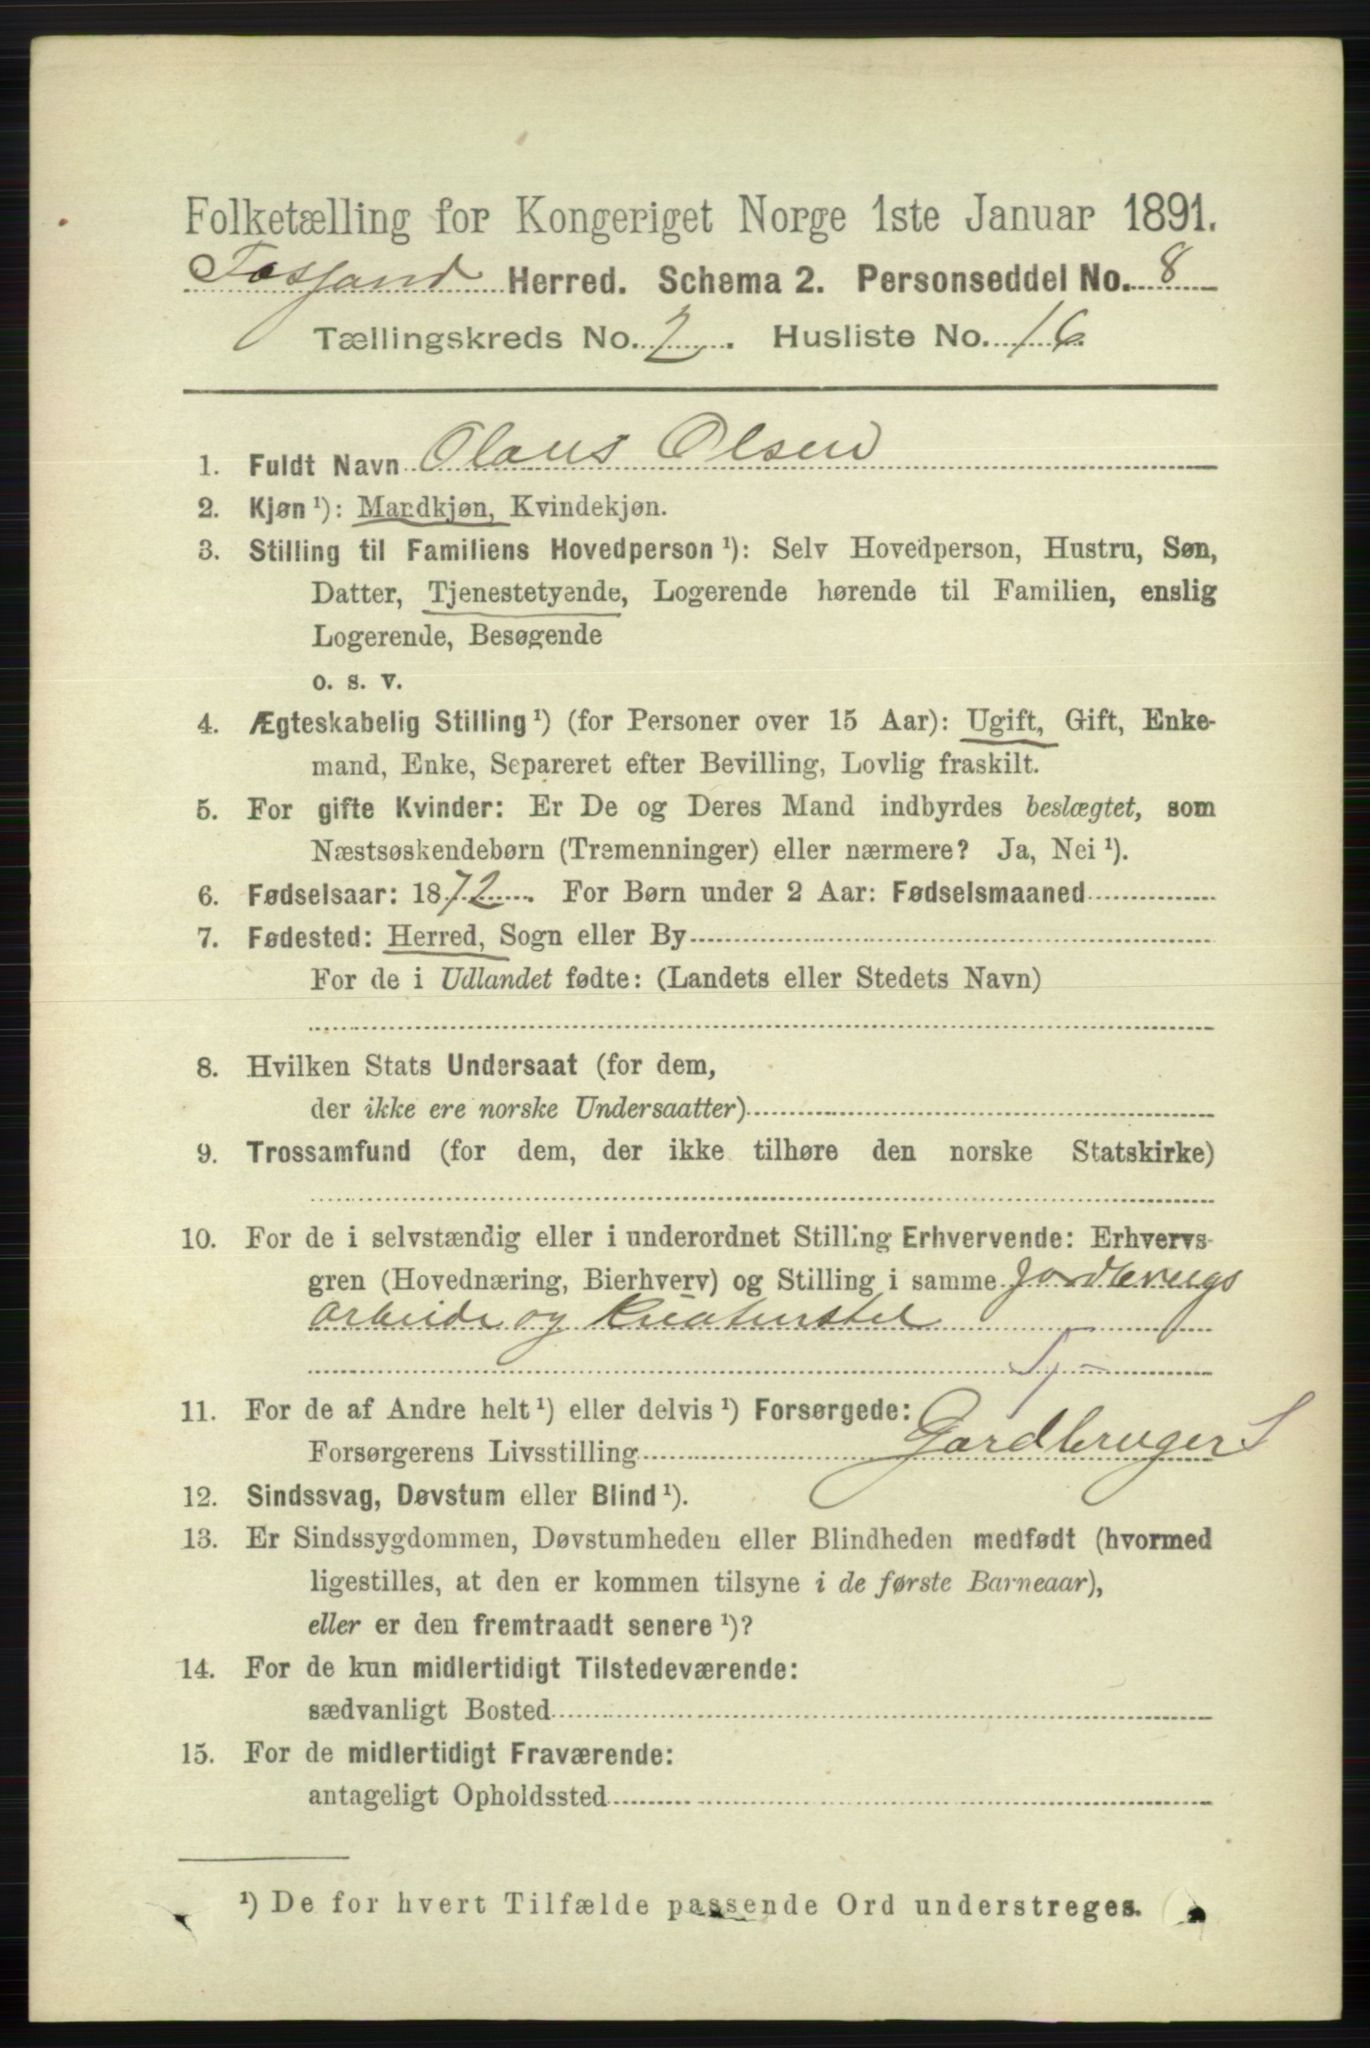 Folketælling for Kongeriget Norge 1ste Januar 1891.
Fosland Herred. Schema 2. Personseddel No. 8
Tællingskreds No. 2. Husliste No. 16
1. Fuldt Navn Olaus Olsen
2. Kjøn ¹): Mandkjøn, Kvindekjøn.
3. Stilling til Familiens Hovedperson ¹): Selv Hovedperson, Hustru, Søn,
Datter, Tjenestetyende, Logerende hørende til Familien, enslig
Logerende, Besøgende
o. s. v.
4. Ægteskabelig Stilling ¹) (for Personer over 15 Aar): Ugift, Gift, Enke-
mand, Enke, Separeret efter Bevilling, Lovlig fraskilt.
5. For gifte Kvinder: Er De og Deres Mand indbyrdes beslægtet, som
Næstsøskendebørn (Tremenninger) eller nærmere? Ja, Nei ¹).
6. Fødselsaar: 1872. For Børn under 2 Aar: Fødselsmaaned
7. Fødested: Herred, Sogn eller By
For de i Udlandet fødte: (Landets eller Stedets Navn)
8. Hvilken Stats Undersaat (for dem,
der ikke ere norske Undersaatter)
9. Trossamfund (for dem, der ikke tilhøre den norske Statskirke)
10. For de i selvstændig eller i underordnet Stilling Erhvervende: Erhvervs-
gren (Hovednæring, Bierhverv) og Stilling i samme Jordbrugs
arbeide og Kreaturstel
11. For de af Andre helt ¹) eller delvis ¹) Forsørgede:
Forsørgerens Livsstilling Gardbruger S
12. Sindssvag, Døvstum eller Blind ¹).
13. Er Sindssygdommen, Døvstumheden eller Blindheden medfødt (hvormed
ligestilles, at den er kommen tilsyne i de første Barneaar),
eller er den fremtraadt senere ¹)?
14. For de kun midlertidigt Tilstedeværende:
sædvanligt Bosted
15. For de midlertidigt Fraværende:
antageligt Opholdssted
¹) De for hvert Tilfælde passende Ord understreges.